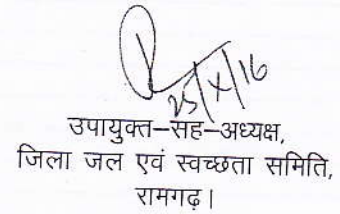 25/X/16
उपायुक्त–सह–अध्यक्ष,
जिला जल एवं स्वच्छता समिति,
रामगढ़।